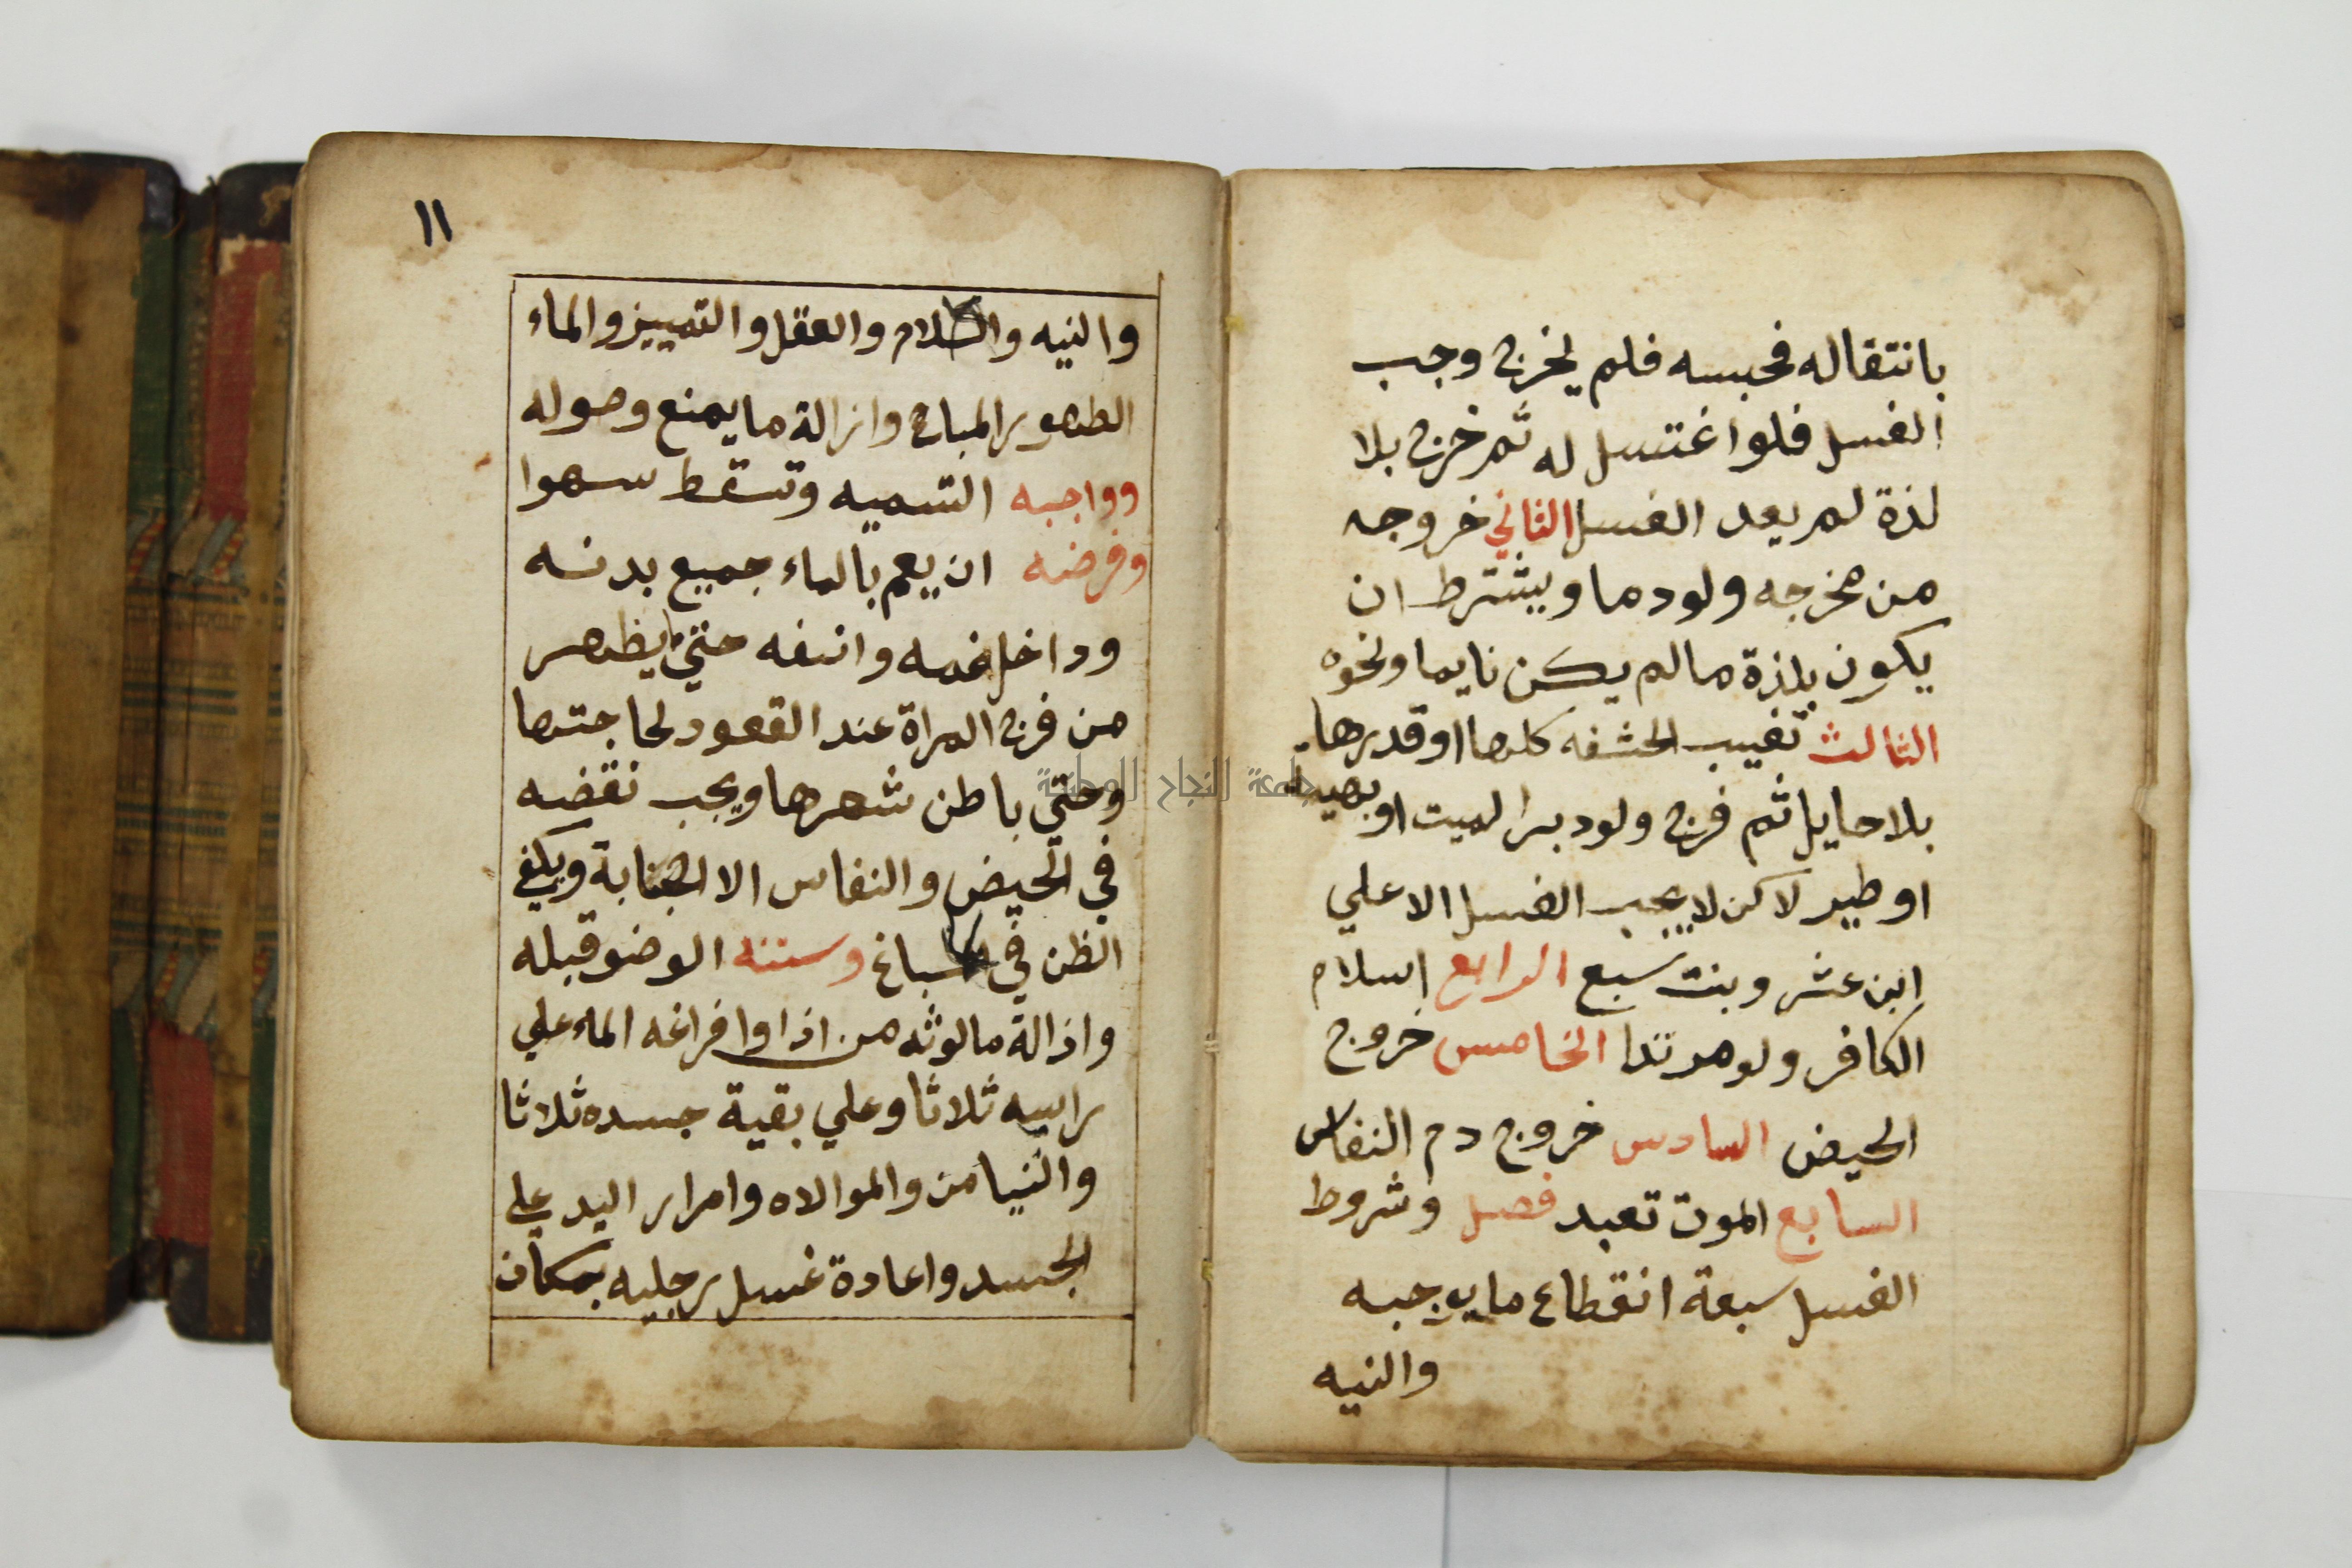 بانتقاله فحبسه فلم يخرج وجب
الغسل فلو اغتسل له ثم خرج بلا
لذة لم يعد الغسل الثاني خروجه
من مخرجه ولو دما ويشترط ان
يكون بلذة مالم يكن نايما ونحوه
الثالث تغييب الحشفه كلها او قدرها
بلا حايل في فرج ولو دبرا لميت او بهيمة
او طير لاكن لا يجب الغسل الا علي
ابن عشر وبنت سبع الرابع اسلام
الكافر ولو مرتدا الخامس خروج
الحيض السادس خروج دم النفاس
السابع الموت تعبد فصل وشروط
الغسل سبعة انقطاع ما يوجبه
والنيه
١١
والنيه والاسلام والعقل والتمييز والماء
الطهور المباح وازالة ما يمنع وصوله
وواجبه التسميه وتسقط سهوا
وفرضه ان يعم بالماء جميع بدنه
وداخل فمه وانفه حتي ما يظهر
من فرج المراة عند القعود لحاجتها
وحتي باطن شعرها ويجب نقضه
في الحيض والنفاس الا الجنابة ويكفي
الظن في الاسباغ وسننه الوضو قبله
وازالة ما لوثه من اذا وافراغه الماء علي
راسه ثلاثا وعلي بقية جسده ثلاثا
والتيامن والموالاه وامرار اليد علي
الجسد واعادة غسل رجليه بمكان
جامعة النجاح الوطنية